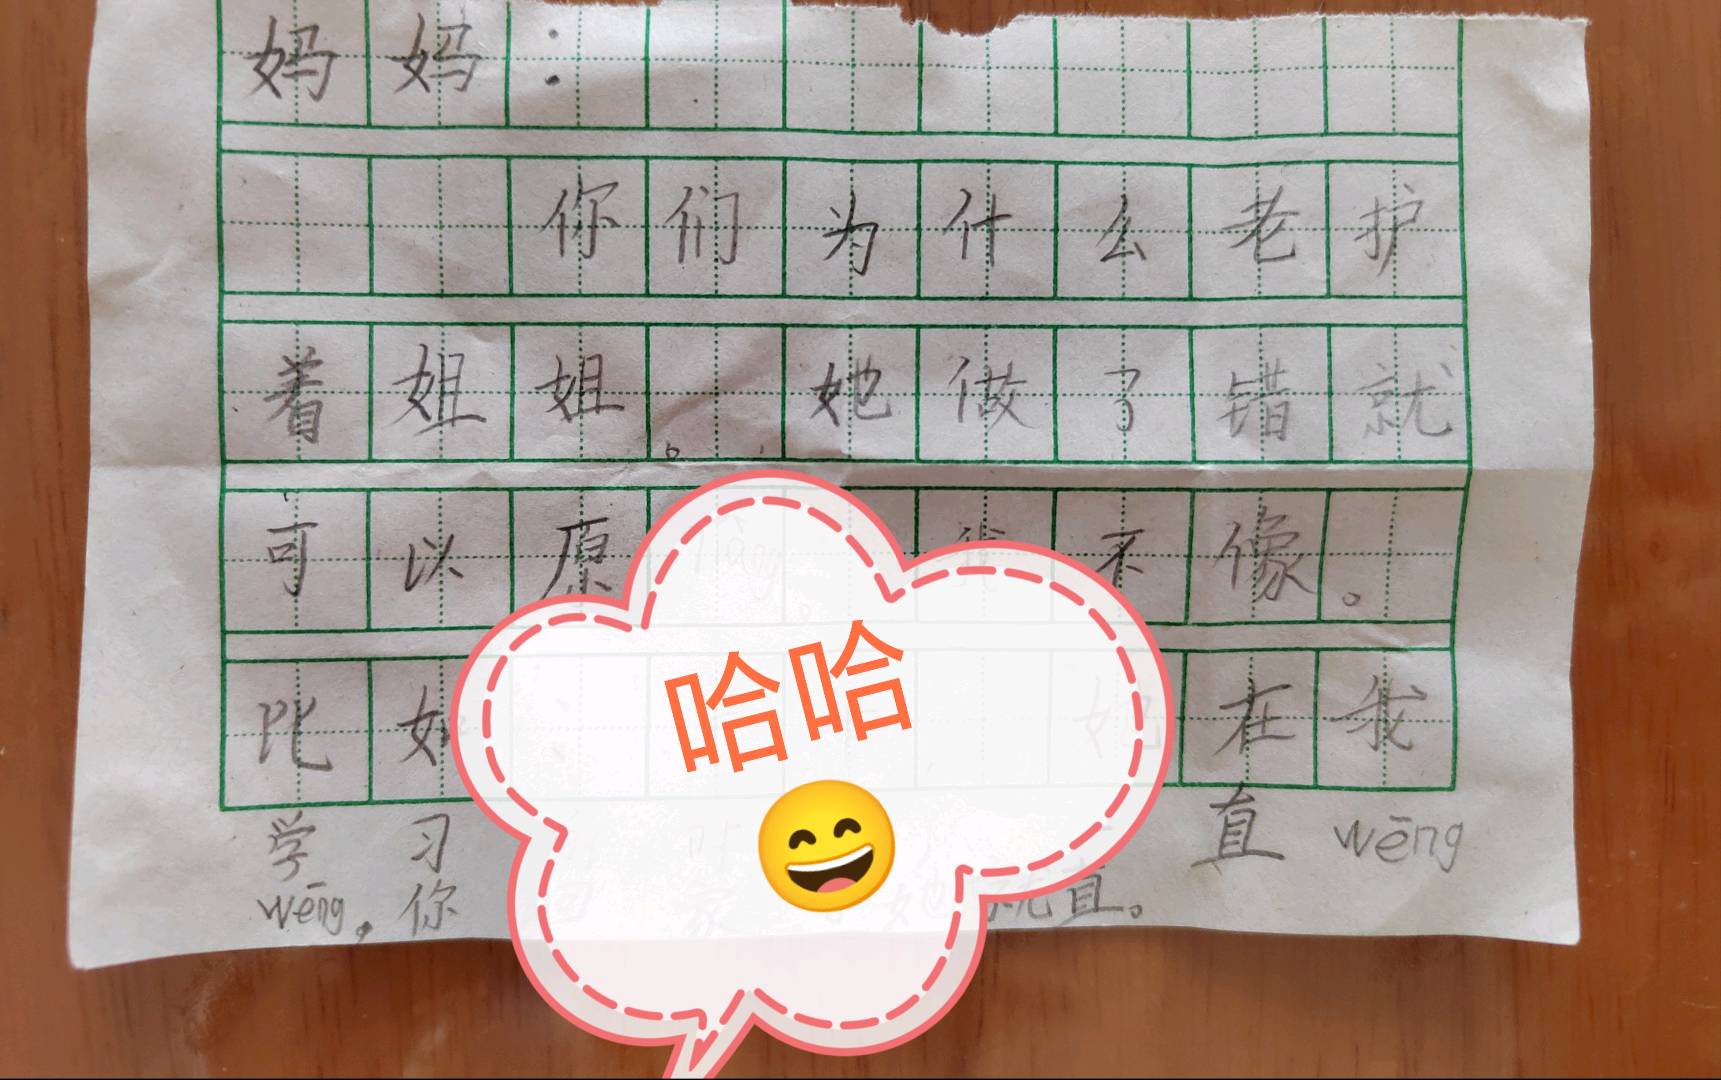 妈妈：
你们为什么老护
着姐姐。她做了错就
可以原 我不像。
比如 她在我
学习 直wēng
wēng，你 她就直。
哈哈